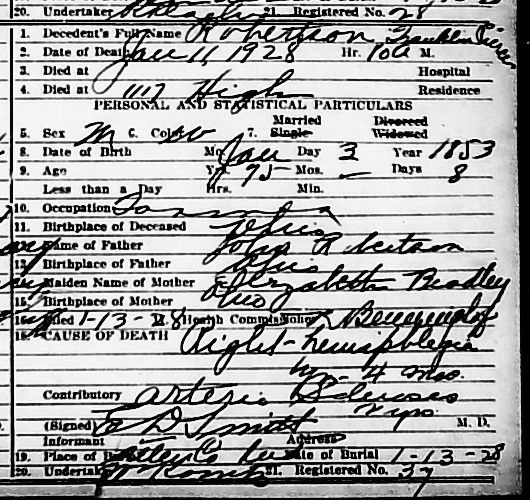 20. Undertaker 21. Registered No. 28
1. Decedent's Full Name Robertson, Franklin Pierce
2. Date of Death Jan 11, 1928 Hr. 10a M.
3. Died at Hospital
4. Died at 1117 High Residence
PERSONAL AND STATISTICAL PARTICULARS
Married Divorced
5. Sex M 6. Color W 7. Single Widowed
8. Date of Birth Mo. Jan Day 3 Year 1853
9. Age Yrs. 75 Mos. — Days 8
Less than a Day Hrs. Min.
10. Occupation Farmer
11. Birthplace of Deceased Ohio
Name of Father John Robertson
12. Birthplace of Father Ohio
Maiden Name of Mother Elizabeth Bradley
15. Birthplace of Mother Ohio
Filed 1-13-28 Health Commissioner
CAUSE OF DEATH Right-hemiphlegia
4 mos.
Contributory arterio Sclerosis
yrs
(Signed) D Smith M. D.
Informant Address
19. Place of Burial Date of Burial 1-13-28
20. Undertaker 21. Registered No. 37